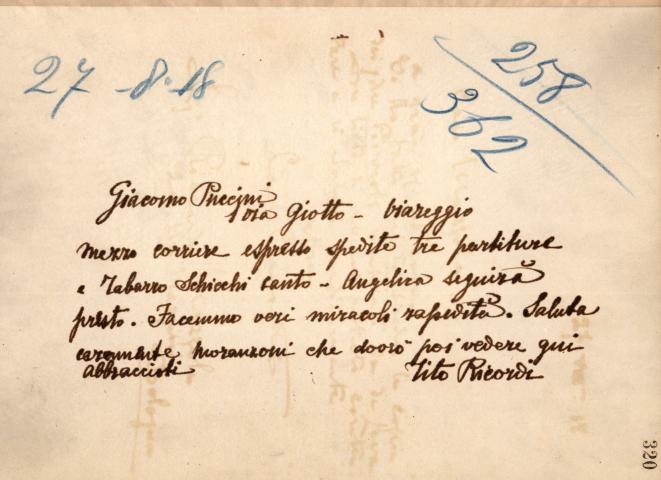 27-8-18
258
362
Giacomo Puccini
Via Giotto - Viareggio
mezzo corriere espresso spedite tre partiture
e Tabarro Schicchi canto - Angelica seguirà
presto. Facemmo veri miracoli rapidità. Saluta
caramente Moranzoni che dovrò poi vedere qui
Abbraccioti Tito Ricordi
320